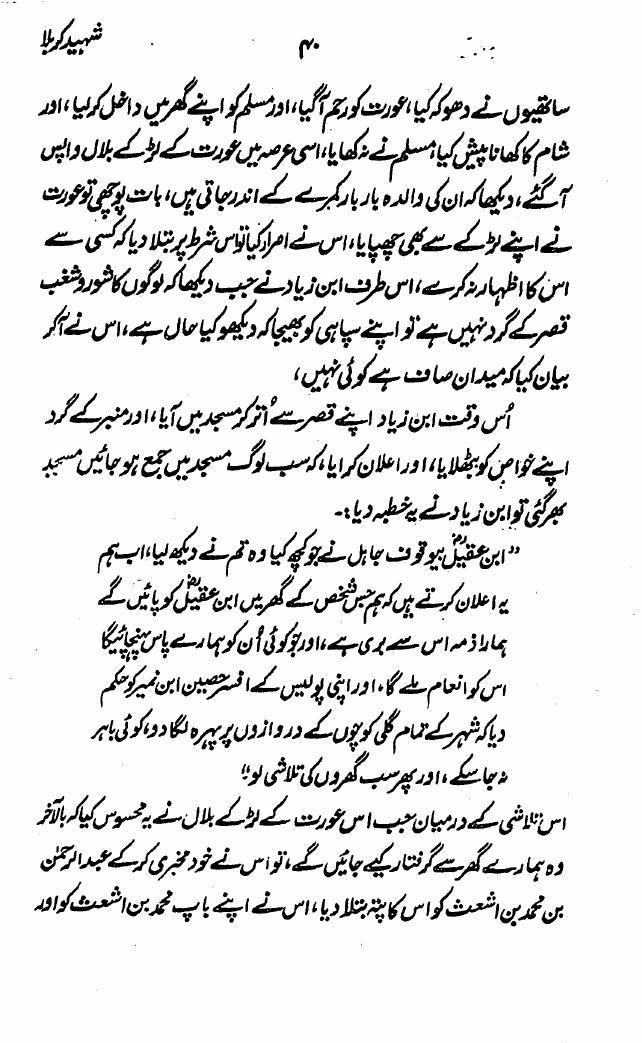 شہید کربلا
۴۰
ساتھیوں نے دھوکہ کیا، عورت کو رحم آگیا، اور مسلم کو اپنے گھر میں داخل کرلیا، اور
شام کا کھانا پیش کیا، مسلم نے نہ کھایا، اسی عرصہ میں عورت کے لڑکے بلال واپس
آگئے، دیکھا کہ ان کی والدہ بار بار کمرے کے اندر جاتی ہیں، بات پوچھی تو عورت
نے اپنے لڑکے سے بھی چھپایا، اس نے اصرار کیا تو اس شرط پر بتلا دیا کہ کسی سے
اس کا اظہار نہ کرے، اس طرف ابن زیاد نے جب دیکھا کہ لوگوں کا شور و شغب
قصر کے گرد نہیں ہے تو اپنے سپاہی کو بھیجا کہ دیکھو کیا حال ہے، اس نے آکر
بیان کیا کہ میدان صاف ہے کوئی نہیں،
اُس وقت ابن زیاد اپنے قصر سے اُتر کر مسجد میں آیا، اور منبر کے گرد
اپنے خواص کو بٹھلایا، اور اعلان کرایا، کہ سب لوگ مسجد میں جمع ہو جائیں مسجد
بھر گئی تو ابن زیاد نے یہ خطبہ دیا:-
"ابن عقیلؓ بیوقوف جاہل نے جو کچھ کیا وہ تم نے دیکھ لیا، اب ہم
یہ اعلان کرتے ہیں کہ ہم جس شخص کے گھر میں ابن عقیلؓ کو پائیں گے
ہمارا ذمہ اس سے بری ہے، اور جو کوئی اُن کو ہمارے پاس پہنچائیگا
اس کو انعام ملے گا، اور اپنی پولیس کے افسر حصین ابن نمیر کو حکم
دیا کہ شہر کے تمام گلی کوچوں کے دروازوں پر پہرہ لگا دو، کوئی باہر
نہ جا سکے، اور پھر سب گھروں کی تلاشی لو"
اس تلاشی کے درمیان جب اس عورت کے لڑکے بلال نے یہ محسوس کیا کہ بالآخر
وہ ہمارے گھر سے گرفتار کیے جائیں گے، تو اس نے خود مخبری کرکے عبدالرحمٰن
بن محمد بن اشعث کو اس کا پتہ بتلا دیا، اس نے اپنے باپ محمد بن اشعث کو اور